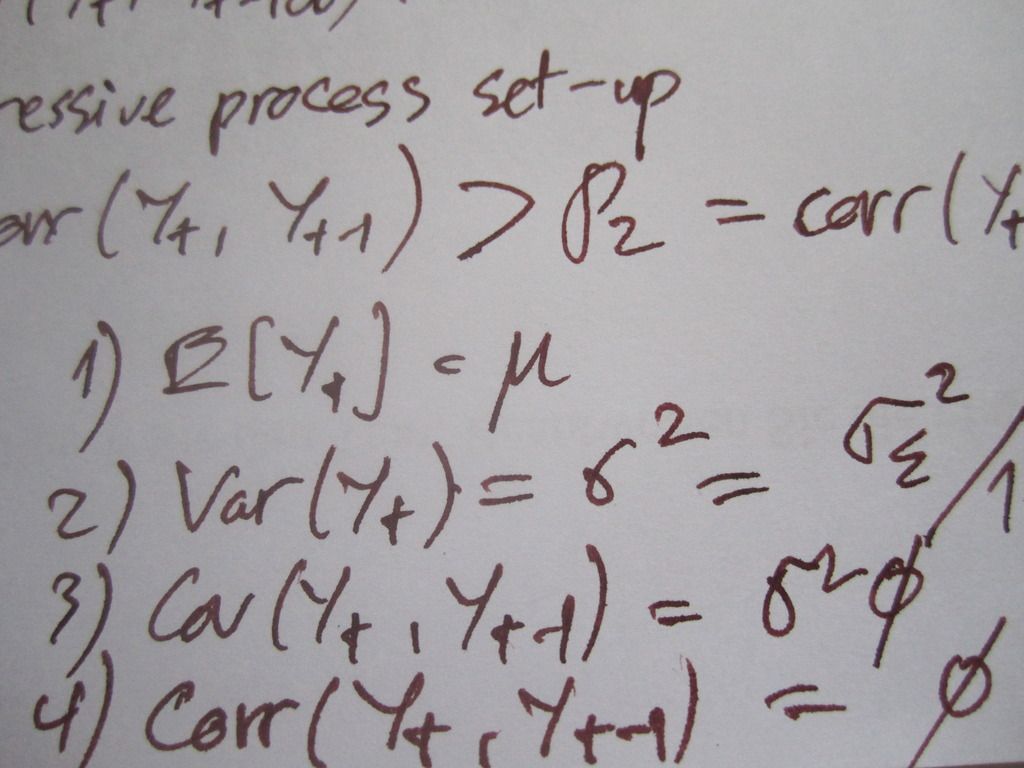 ressive process set-up
orr(Y_t, Y_{t-1}) > ρ_2 = corr(Y_t
1) E[Y_t] = μ
2) Var(Y_t) = σ^2 = σ_ε^2 / 1
3) Cov(Y_t, Y_{t-1}) = σ^2 φ
4) Corr(Y_t, Y_{t-1}) = φ